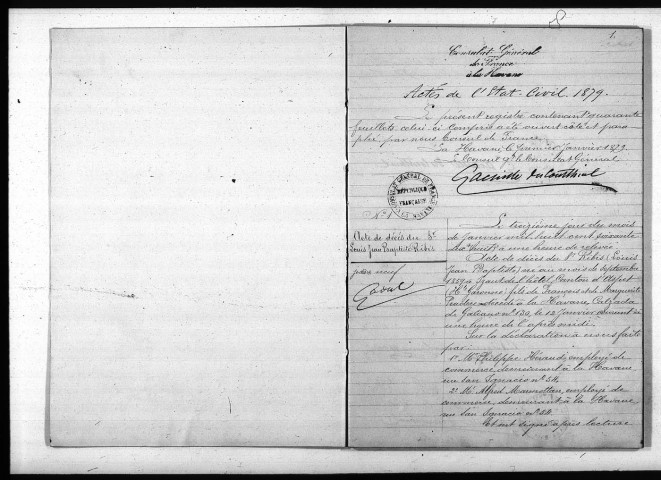 1.
Consulat Général
de France
à la Havane
Actes de l'Etat-Civil 1879.
Le présent registre contenant quarante
feuillets celui ci compris a été ouvert côté et para
phé par nous Consul de France.
La Havane, le premier janvier 1879.
Le Consul Gt le Consulat Général
CONSULAT GÉNÉRAL DE FRANCE
RÉPUBLIQUE
FRANÇAISE
LA HAVANE
No. 1
Acte de décès du Sr
Louis Jean Baptiste Ribis
Le treizième jour du mois
de janvier mil huit cent soixante
dix neuf à une heure de relevée.
Acte de décès du Sr Ribis (Louis
Jean Baptiste) né au mois de Septembre
1859 à
Canton d'Aspet
(Hte Garonne) fils de François et de Marguerite
décédé à la Havane, Calzada
de Galiano no. 120, le 12 Janvier courant à
une heure de l'après midi.
Sur la déclaration à nous faite
par:
1o. Mr Philippe Héraud, employé de
commerce, demeurant à la Havane
rue San Ignacio no. 54.
2o. Mr Alfred Marmottan, employé de
commerce, demeurant à la Havane
rue San Ignacio no. 54.
Et ont signé après lecture